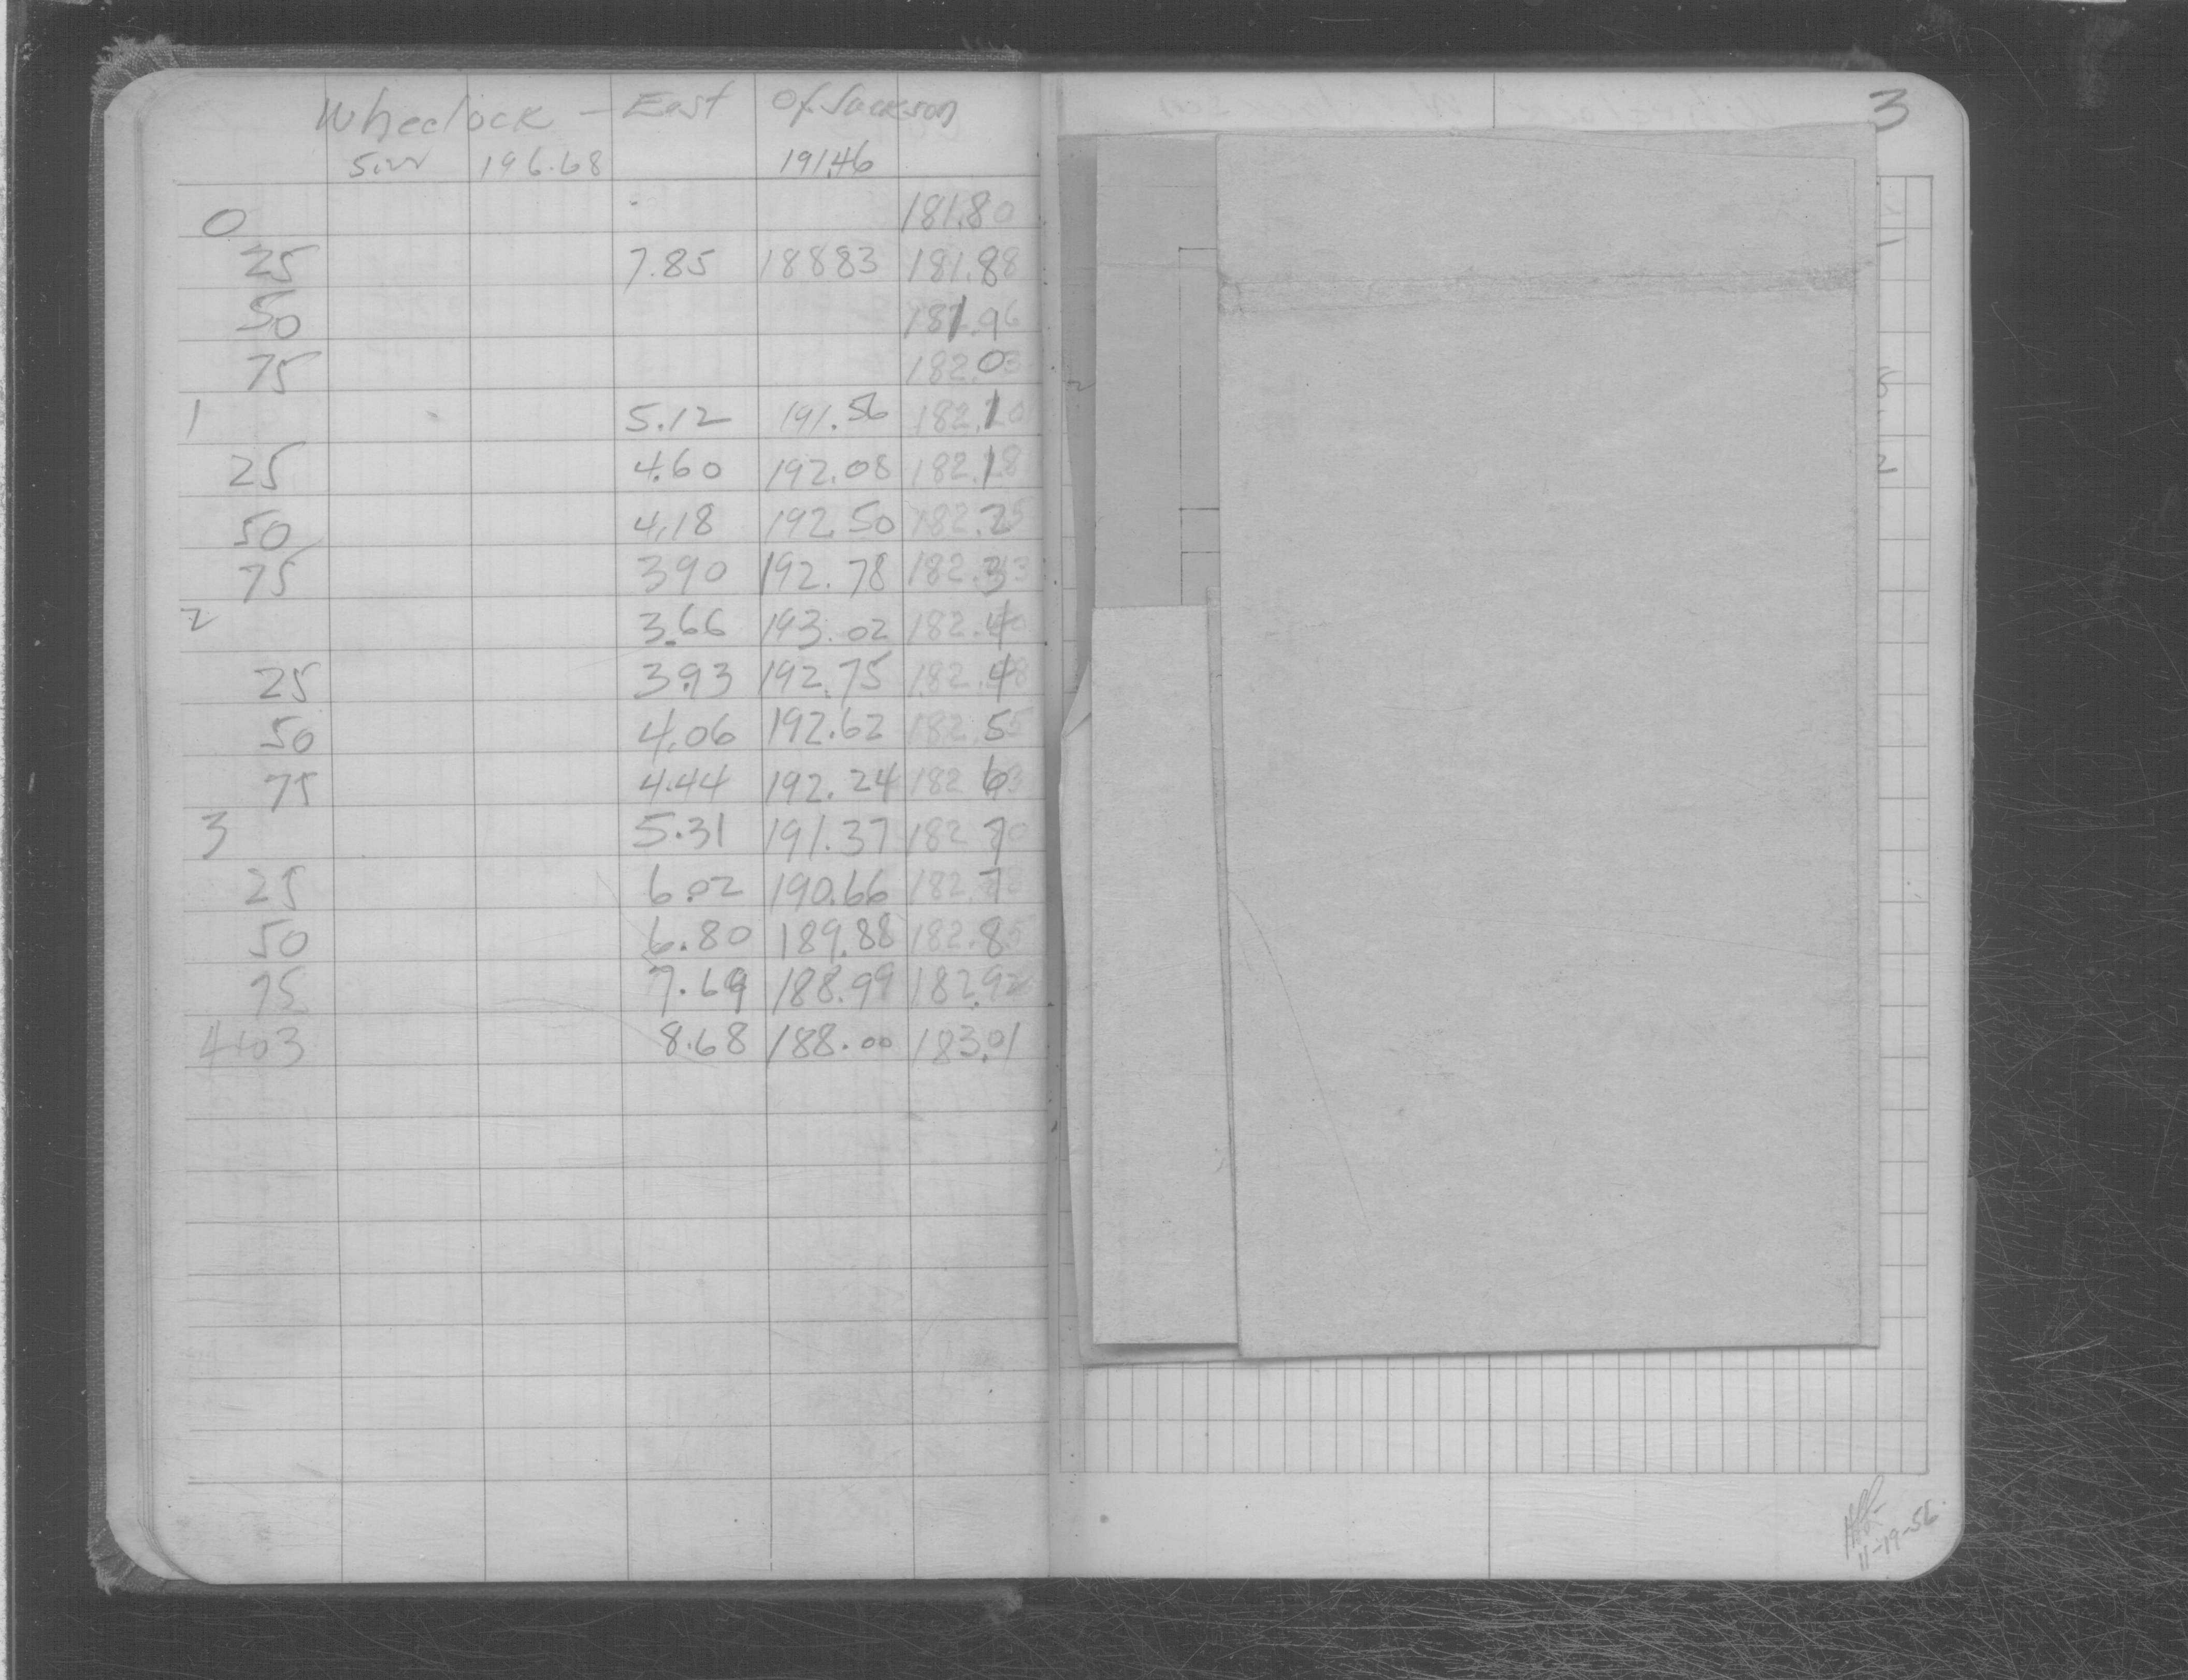 Wheelock - East Of Jackson
196.68 191.46
0 181.80
25 7.85 188 83 181.88
50 181.96
75 182.03
1 5.12 191.56 182.10
25 4.60 192.08 182.18
50 4.18 192.50 182.25
75 390 192.78 182.33
2 3.66 193.02 182.40
25 3.93 192.75 182.48
50 4.06 192.62 182.55
75 4.44 192.24 182 63
3 5.31 191.37 182 70
25 6.02 190.66
50 6.80 189.88 182.85
75 7.69 188.99 182.92
4+03 8.68 188.00 183.01
3
11-19-56